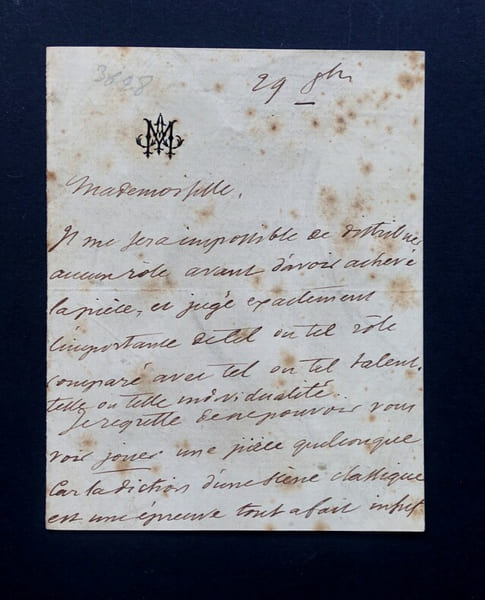 3608
29 8bre
MA
Mademoiselle,
Il me sera impossible de distribuer
aucun rôle avant d'avoir achevé
la pièce, et jugé exactement
l'importance de tel ou tel rôle
comparé avec tel ou tel talent,
telle ou telle individualité.
Je regrette de ne pouvoir vous
voir jouer une pièce quelconque
car la diction d'une scène classique
est une épreuve tout a fait insuf